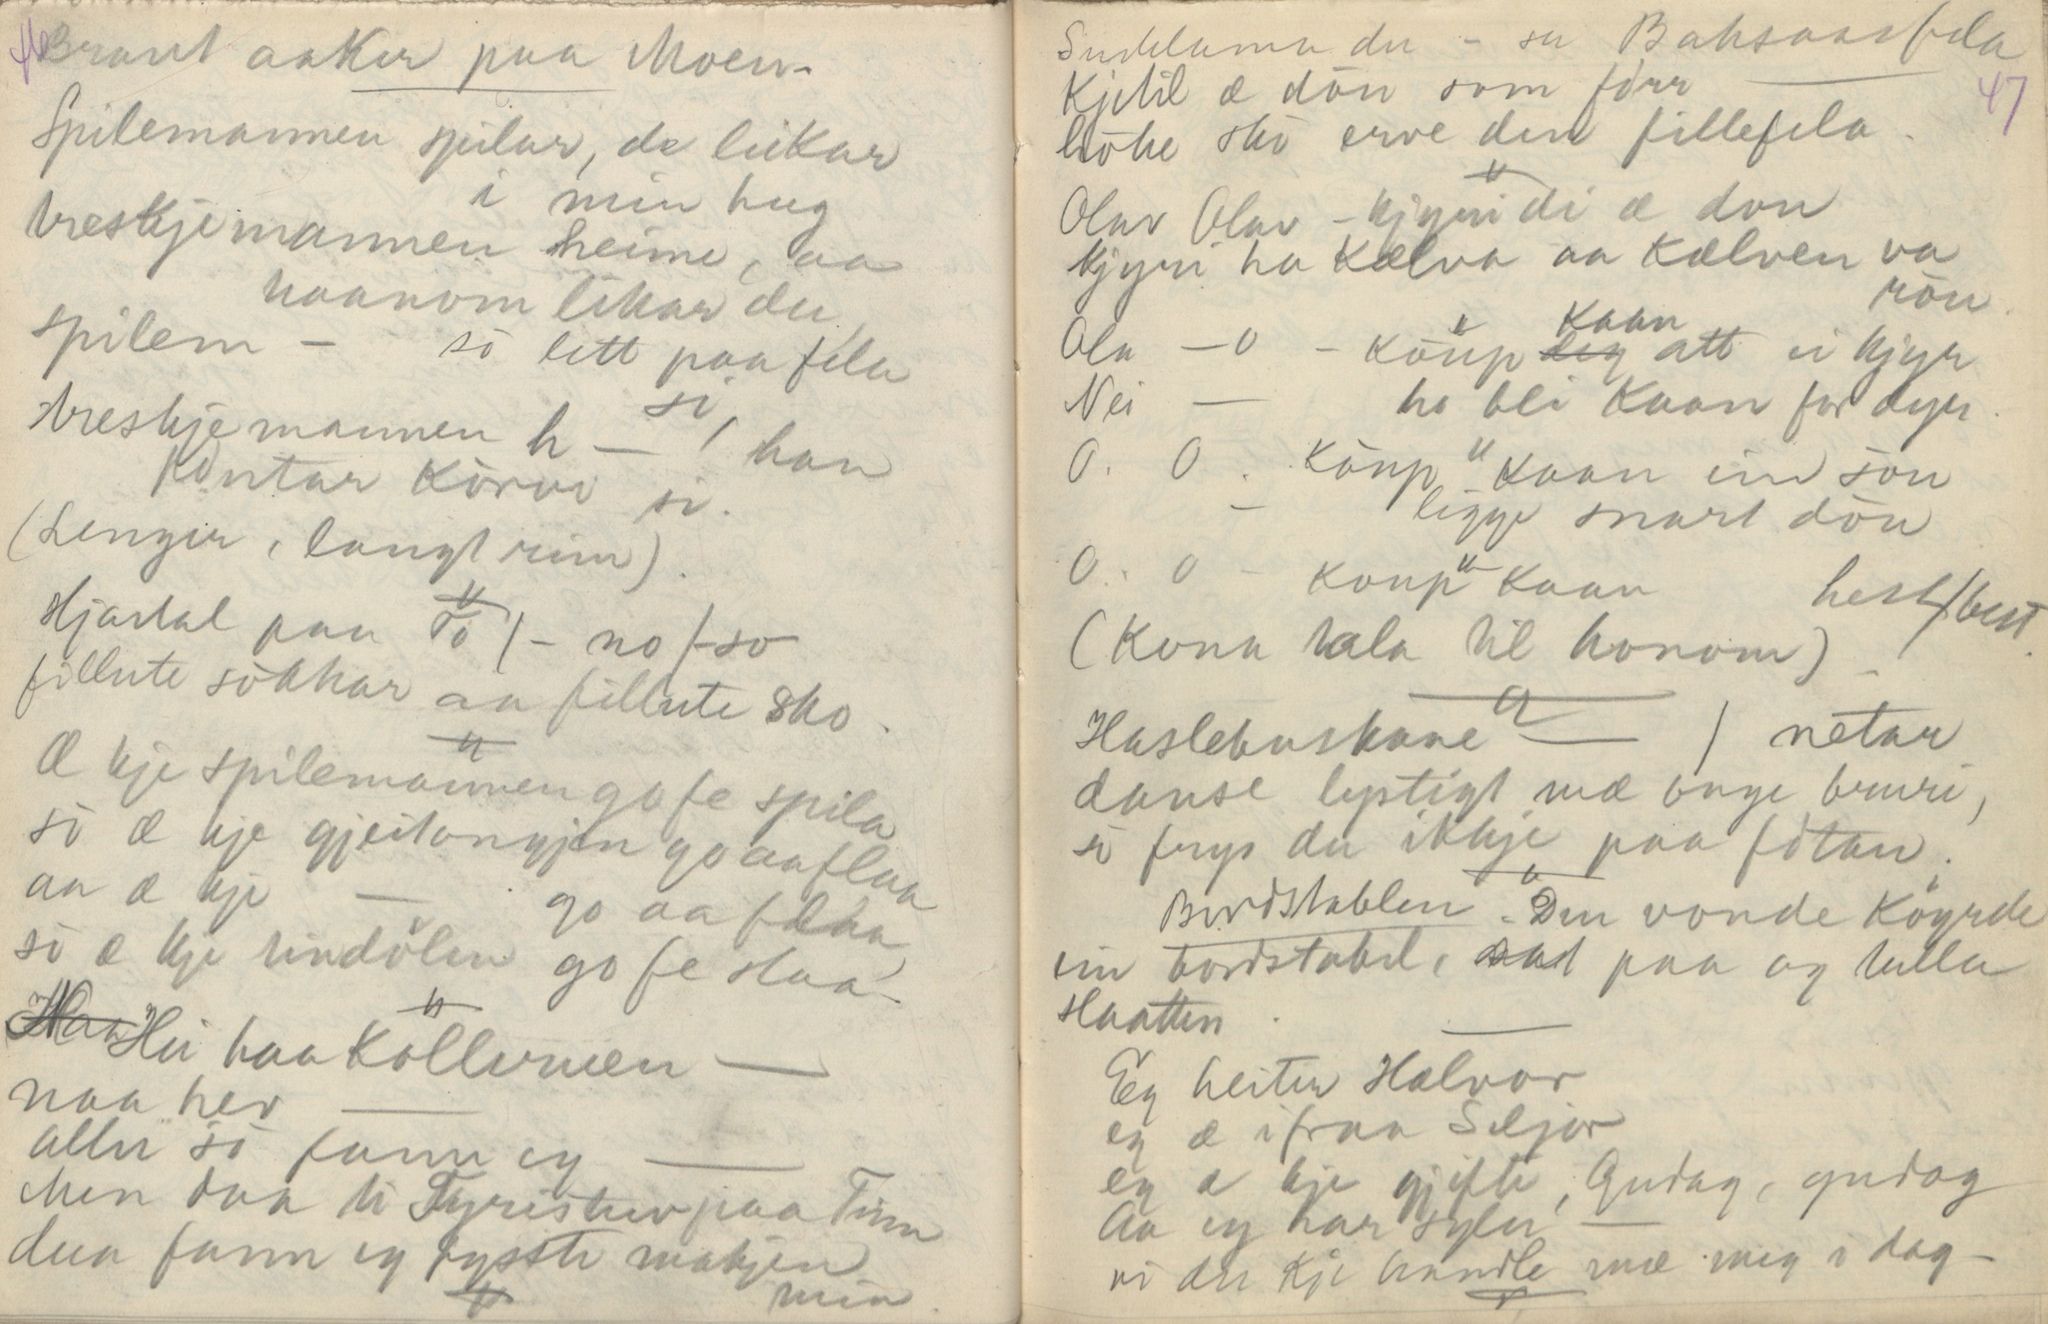 Brant aaker paa Moen.
Spilemannen spilar, de likar
i min hug
treskjemannen heime, aa
haanom likar du
spilem - sö lett paa fela
si,
treskjemannen h — han
Körvi si.
(Lenger, langt rim).
Hjartal paa Tö /- no /-so
fillute sökkar aa fillute sko.
Æ kje spilemannen go fe spila
sö æ kje gjeitongjen go aa flaa
aa æ kje — go aa flaa
sö æ kje tindölen go fe slaa
Hei haa Köllernen —
naa her —
aller sö fann eg —
Men daa ti Tyristrev paa Tinn
daa fann eg kysste makjen
min.
47
du - sa Baksaasfela
Kjetil æ dön som förr
höke skö erve den fillefela.
Olav Olav - kjyri di æ don
kjyri ha Kælva aa Kælven va
rön.
Ola - O - köup Kaan att ei kjyr
Nei — ho bli Kaan for dyr.
O. O. Köup Kaan ein sön
- ligge snart dön
O. O - Koup Kaan hest/best.
(Kona tala til honom)
Haslebuskane — / netar
danse lystigt mæ onge bruri,
sö frys du ikkje paa fötan.
Bordstablen. Den vonde Köyrde
ein bordstabel, sat paa og tulla
slaatten.
Eg heiter Halvor
eg æ ifraa Seljor
eg æ kje gjifte, Gudag, gudag
Aa eg har syler —
vi du kje handle mæ meg i dag -